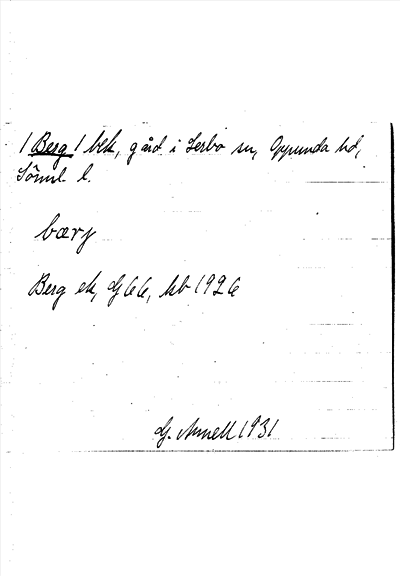 / Berg / blk, gård i Lerbo sn, Oppunda hd,
Söml l.
bærj
Berg ek, G 66, kb 1926
G. Annell 1931